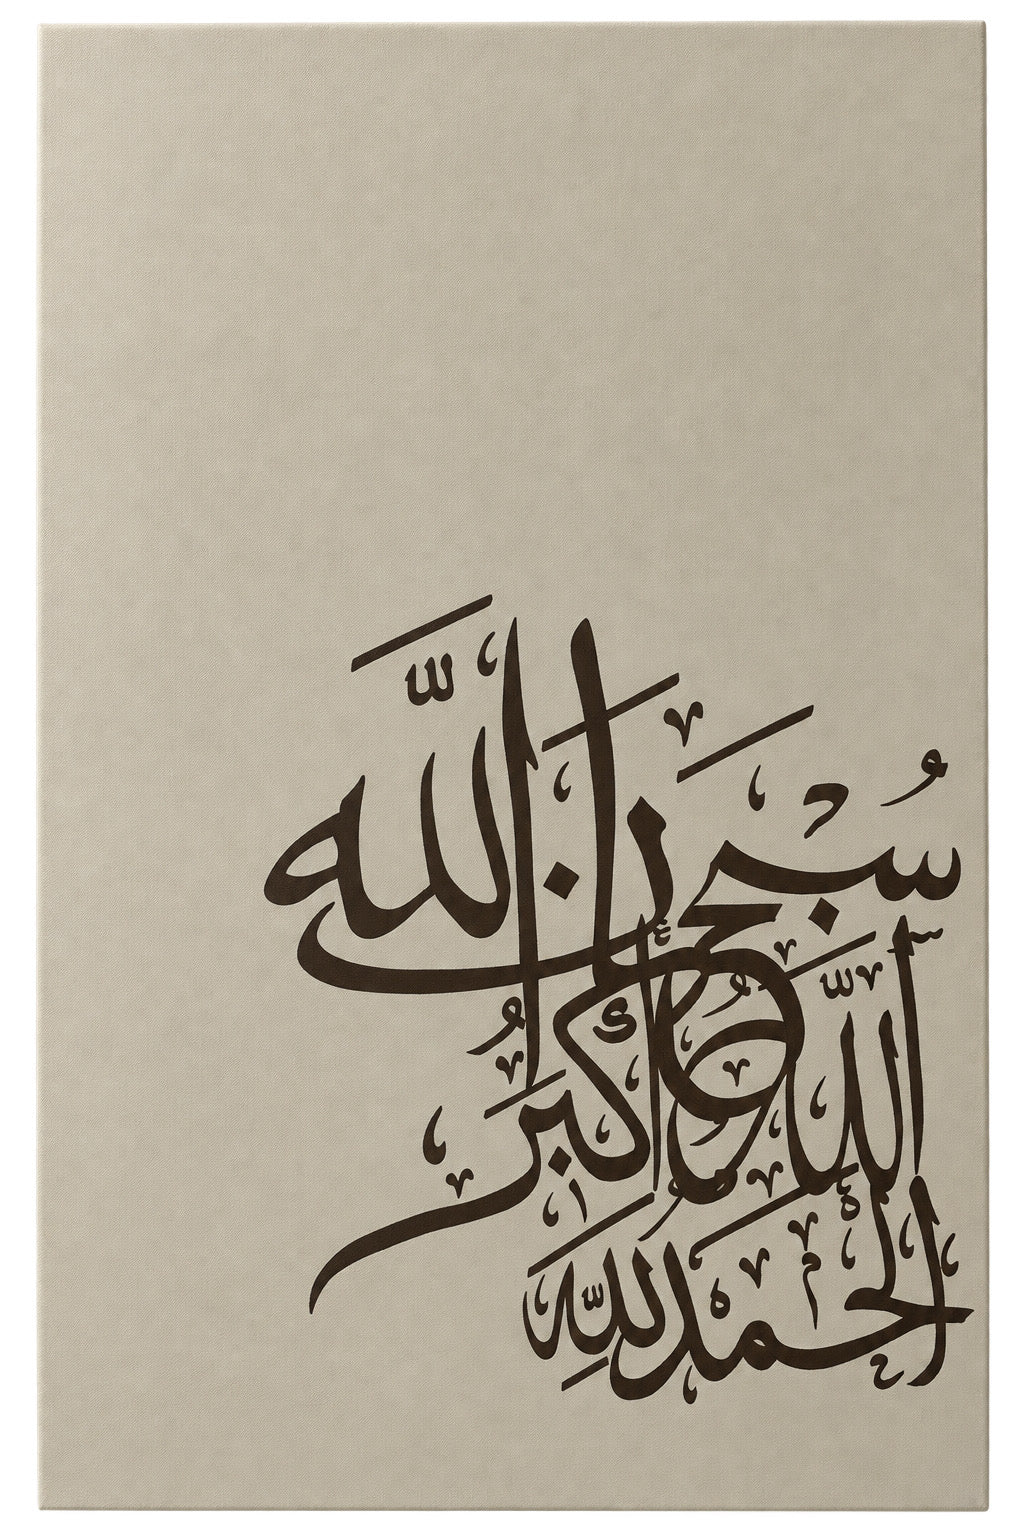 سُبْحٰنَ اللّٰه
اللّٰهُ أَكْبَرُ
الْحَمْدُ لِلّٰهِ